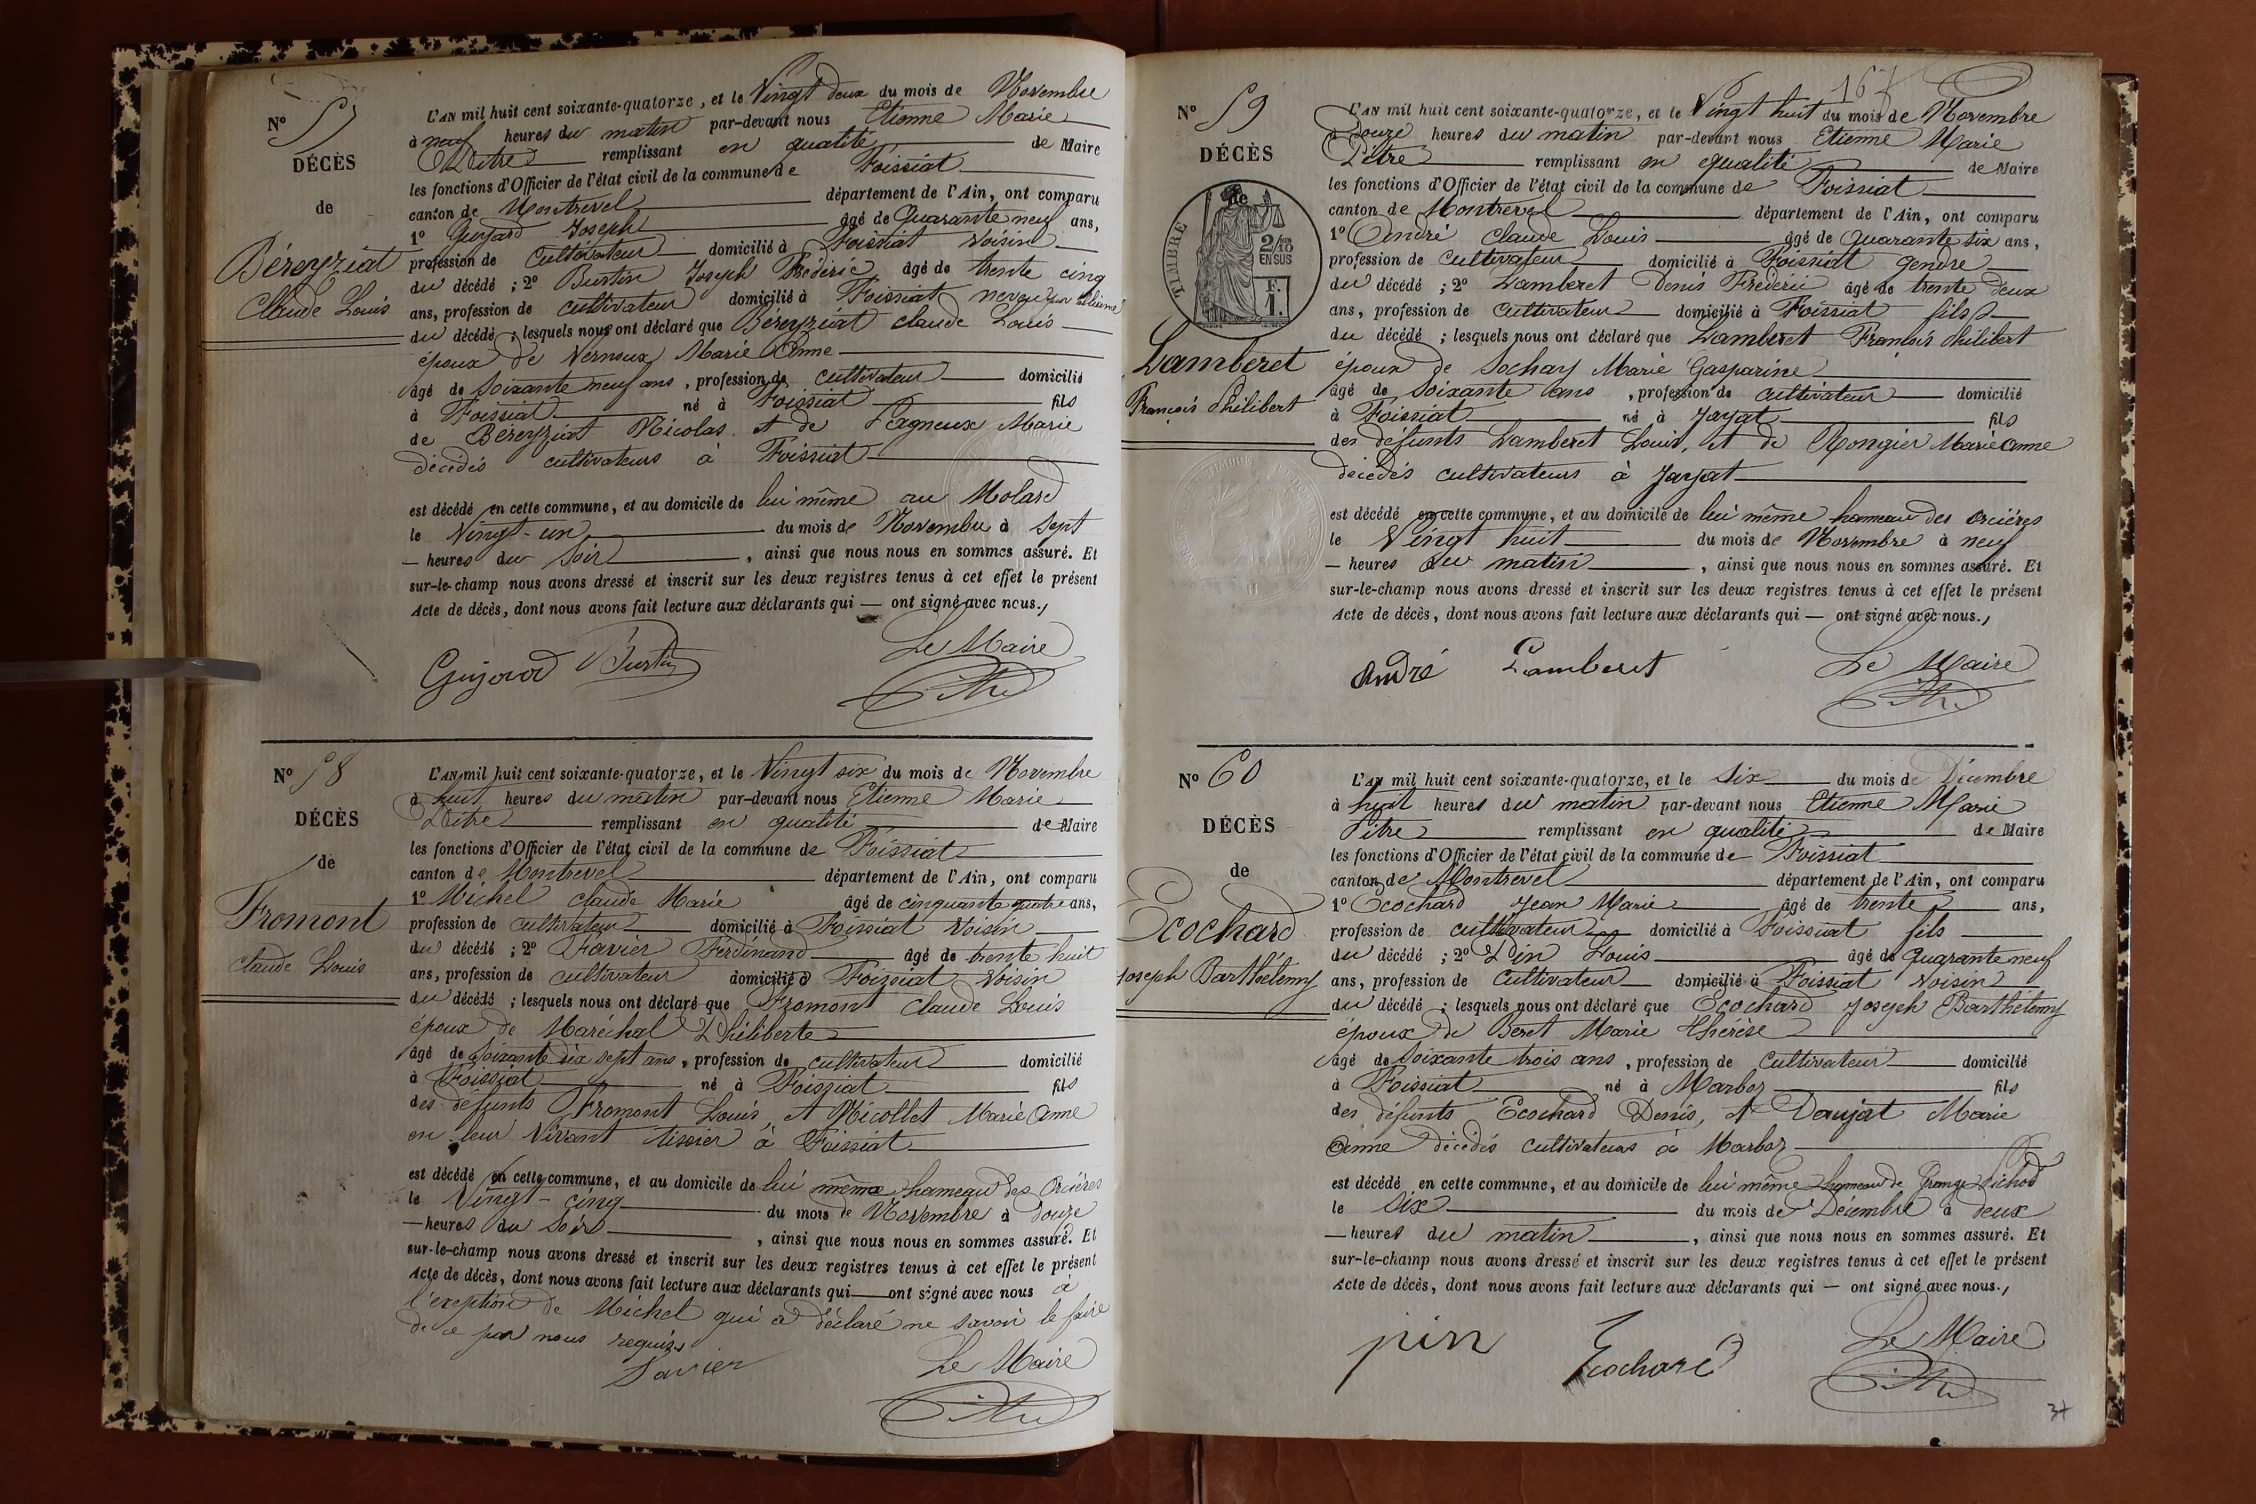 N° 57
DÉCÈS
de
Béreyziat
Claude Louis
L'AN mil huit cent soixante-quatorze, et le Vingt deux du mois de Novembre
à neuf heures du matin par-devant nous Etienne Marie
Pitre remplissant en qualité de Maire
les fonctions d'Officier de l'état civil de la commune de Foissiat
canton de Montrevel département de l'Ain, ont comparu
1° Guyard Joseph âgé de Quarante neuf ans,
profession de Cultivateur domicilié à Foissiat voisin
du décédé ; 2° Burtin Joseph Fréderic âgé de trente cinq
ans, profession de cultivateur domicilié à Foissiat neveu par alliance
du décédé ; lesquels nous ont déclaré que Béreyziat Claude Louis
époux de Vernoux Marie Anne
âgé de Soixante neuf ans, profession de cultivateur domicilié
à Foissiat né à Foissiat fils
de Béreyziat Nicolas et de Pagneux Marie
décédés cultivateurs à Foissiat
est décédé en cette commune, et au domicile de lui même au Molard
le Vingt-un du mois de Novembre à Sept
heures du Soir, ainsi que nous nous en sommes assuré. Et
sur-le-champ nous avons dressé et inscrit sur les deux registres tenus à cet effet le présent
Acte de décès, dont nous avons fait lecture aux déclarants qui — ont signé avec nous.
Guyard Burtin Le Maire
Pitre
N° 58
DÉCÈS
de
Fromont
Claude Louis
L'AN mil huit cent soixante-quatorze, et le Vingt six du mois de Novembre
à huit heures du matin par-devant nous Etienne Marie
Pitre remplissant en qualité de Maire
les fonctions d'Officier de l'état civil de la commune de Foissiat
canton de Montrevel département de l'Ain, ont comparu
1° Michel Claude Marie âgé de cinquante quatre ans,
profession de cultivateur domicilié à Foissiat Voisin
du décédé ; 2° Favier Ferdinand âgé de trente huit
ans, profession de cultivateur domicilié à Foissiat Voisin
du décédé ; lesquels nous ont déclaré que Fromont Claude Louis
époux de Maréchal Philiberte
âgé de Soixante dix sept ans, profession de cultivateur domicilié
à Foissiat né à Foissiat fils
des défunts Fromont Louis, et Nicollet Marie Anne
en leur Vivant tissier à Foissiat
est décédé en cette commune, et au domicile de lui même hameau des Orcières
le Vingt-cinq du mois de Novembre à Douze
—heures du Soir, ainsi que nous nous en sommes assuré. Et
sur-le-champ nous avons dressé et inscrit sur les deux registres tenus à cet effet le présent
Acte de décès, dont nous avons fait lecture aux déclarants qui — ont signé avec nous à
l'exeption de Michel qui a déclaré ne savoir le faire
de ce par nous requis
Favier Le Maire
Pitre
167
N° 59
DÉCÈS
de
TIMBRE
2/10
EN SUS
F.
1.
Lamberet
François Philibert
L'AN mil huit cent soixante-quatorze, et le Vingt huit du mois de Novembre
à Douze heures du matin par-devant nous Etienne Marie
Pitre remplissant en qualité de Maire
les fonctions d'Officier de l'état civil de la commune de Foissiat
canton de Montrevel département de l'Ain, ont comparu
1° André Claude Louis âgé de Quarante six ans,
profession de cultivateur domicilié à Foissiat gendre
du décédé ; 2° Lamberet Denis Fréderic âgé de trente deux
ans, profession de Cultivateur domicilié à Foissiat fils
du décédé ; lesquels nous ont déclaré que Lamberet François Philibert
époux de Sochay Marie Gasparine
âgé de Soixante ans, profession de cultivateur domicilié
à Foissiat né à Jayat fils
des défunts Lamberet Louis, et de Rongier Marie Anne
décédés cultivateurs à Jayat
est décédé en cette commune, et au domicile de lui même hameau des Orcières
le Vingt huit du mois de Novembre à neuf
— heures du matin, ainsi que nous nous en sommes assuré. Et
sur-le-champ nous avons dressé et inscrit sur les deux registres tenus à cet effet le présent
Acte de décès, dont nous avons fait lecture aux déclarants qui — ont signé avec nous.
André Lamberet Le Maire
Pitre
N° 60
DÉCÈS
de
Ecochard
Joseph Barthélemy
L'AN mil huit cent soixante-quatorze, et le Six du mois de Décembre
à huit heures du matin par-devant nous Etienne Marie
Pitre remplissant en qualité de Maire
les fonctions d'Officier de l'état civil de la commune de Foissiat
canton de Montrevel département de l'Ain, ont comparu
1° Ecochard Jean Marie âgé de trente ans,
profession de cultivateur domicilié à Foissiat fils
du décédé ; 2° Pin Louis âgé de Quarante neuf
ans, profession de Cultivateur domicilié à Foissiat voisin
du décédé ; lesquels nous ont déclaré que Ecochard Joseph Barthélemy
époux de Beret Marie thérèse
âgé de Soixante trois ans, profession de Cultivateur domicilié
à Foissiat né à Marboz fils
des défunts Ecochard Denis, et Daujat Marie
Anne décédés cultivateurs à Marboz
est décédé en cette commune, et au domicile de lui même hameau de Grange Pichod
le Six du mois de Décembre à deux
— heures du matin, ainsi que nous nous en sommes assuré. Et
sur-le-champ nous avons dressé et inscrit sur les deux registres tenus à cet effet le présent
Acte de décès, dont nous avons fait lecture aux déclarants qui — ont signé avec nous.
pin Ecochard Le Maire
Pitre